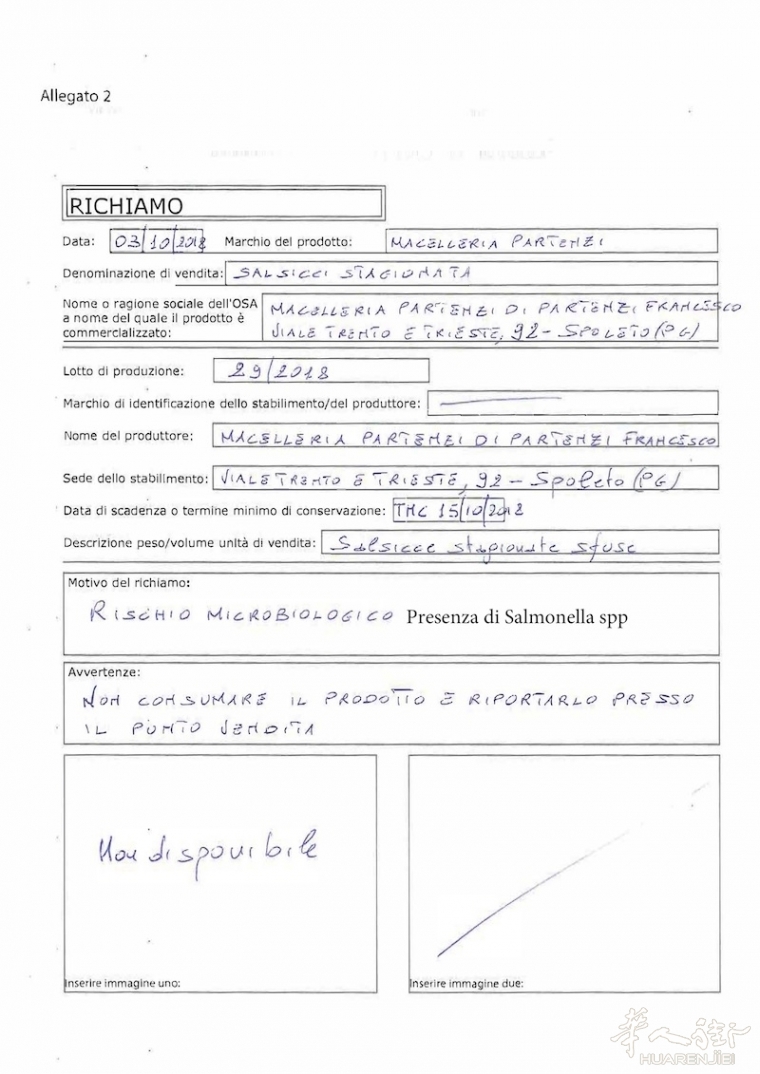 Allegato 2
RICHIAMO
Data: 03/10/2018 Marchio del prodotto: MACELLERIA PARTENZI
Denominazione di vendita: SALSICCI STAGIONATA
Nome o ragione sociale dell'OSA
a nome del quale il prodotto è
commercializzato:
MACELLERIA PARTENZI DI PARTENZI FRANCESCO
VIALE TRENTO E TRIESTE, 92 - SPOLETO (PG)
Lotto di produzione: 29/2018
Marchio di identificazione dello stabilimento/del produttore:
Nome del produttore: MACELLERIA PARTENZI DI PARTENZI FRANCESCO
Sede dello stabilimento: VIALE TRENTO E TRIESTE, 92 - Spoleto (PG)
Data di scadenza o termine minimo di conservazione: TMC 15/10/2018
Descrizione peso/volume unità di vendita: Salsicce stagionate sfuse
Motivo del richiamo:
RISCHIO MICROBIOLOGICO Presenza di Salmonella spp
Avvertenze:
NON CONSUMARE IL PRODOTTO E RIPORTARLO PRESSO
IL PUNTO VENDITA
Non disponibile
Inserire immagine uno: Inserire immagine due:
华人街
HUARENJIE